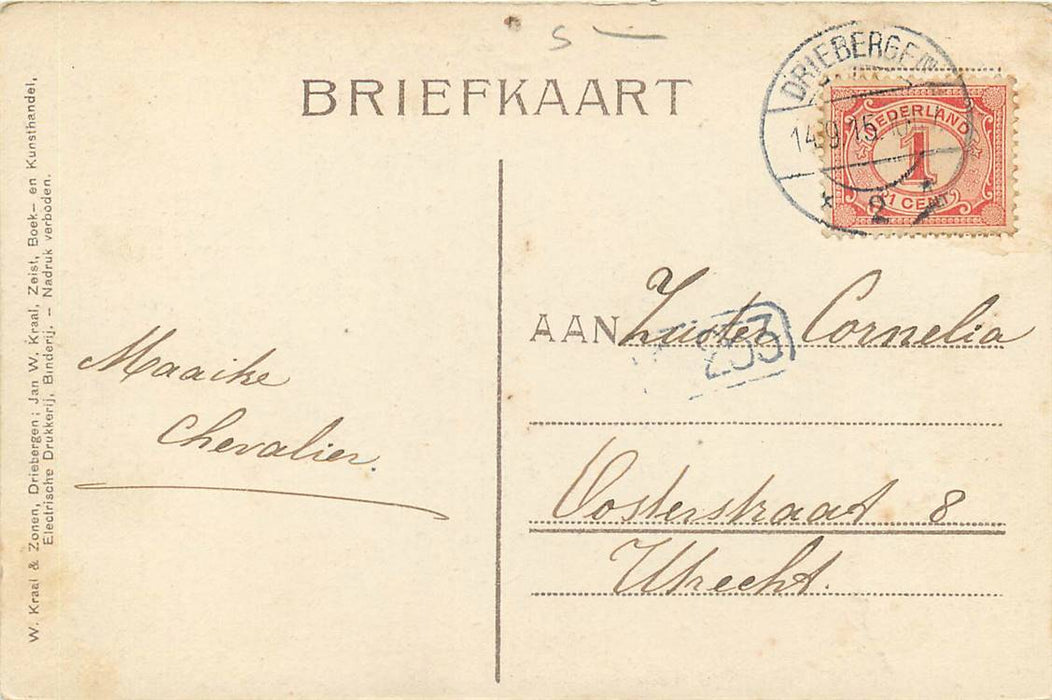 5 —
BRIEFKAART
DRIEBERGEN
14.9.15.
* 2 *
NEDERLAND
1
1 CENT
W. Kraal & Zonen, Driebergen; Jan W. Kraal, Zeist, Boek- en Kunsthandel,
Electrische Drukkerij, Binderij. – Nadruk verboden.
Maaike
Chevalier.
AAN Zuster Cornelia
253
Oosterstraat 8
Utrecht.